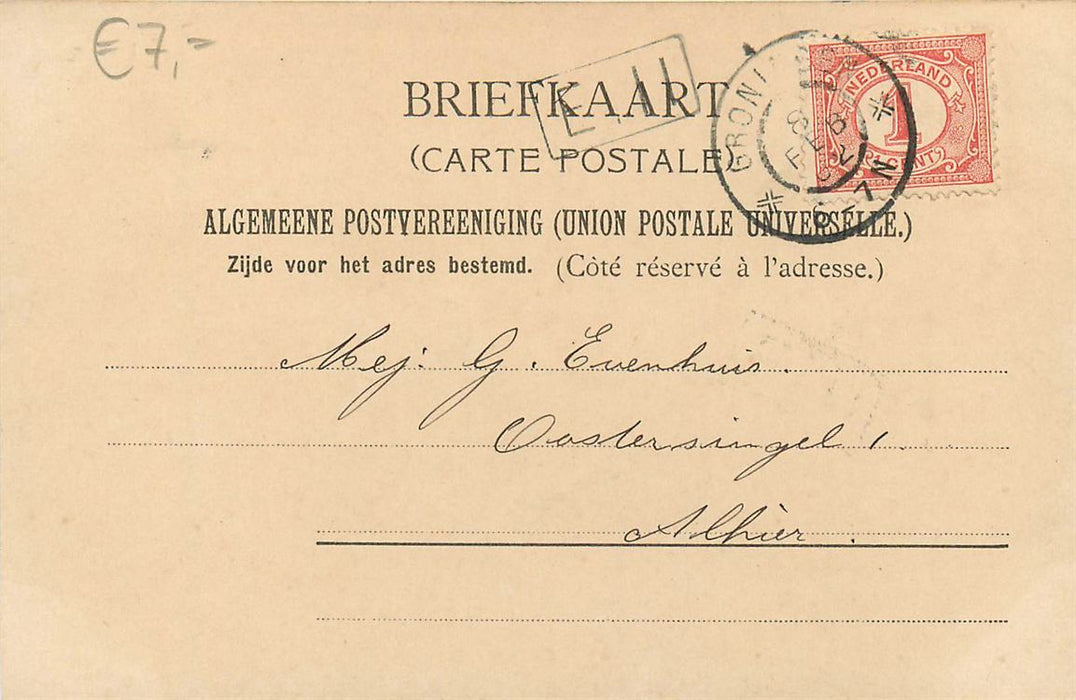 €7,-
E. 11
BRIEFKAART
(CARTE POSTALE)
ALGEMEENE POSTVEREENIGING (UNION POSTALE UNIVERSELLE.)
Zijde voor het adres bestemd. (Côté réservé à l'adresse.)
NEDERLAND
1
CENT
8 FEB
Mej. G. Evenhuis.
Oostersingel 1
Alhier.